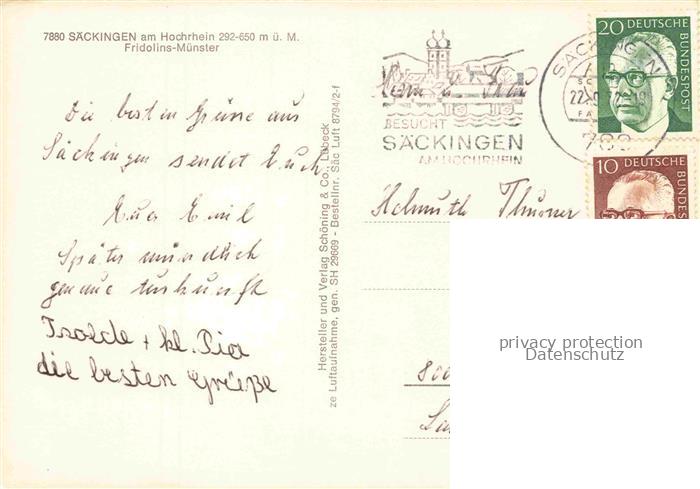 7880 SÄCKINGEN am Hochrhein 292-650 m ü. M.
Fridolins-Münster
Die besten Grüsse aus
Säckingen sendet Euch
Euer Emil
Später mündlich
genaue Auskunft
Isolde + kl. Pia
die besten Grüße
Hersteller und Verlag Schöning & Co., Lübeck
ze Luftaufnahme, gen. SH 29669 - Bestellnr. Säc Luft 8794/2-f
BESUCHT
SÄCKINGEN
AM HOCHRHEIN
SÄCKINGEN
20 DEUTSCHE
BUNDESPOST
10 DEUTSCHE
Helmuth Thurner
800
privacy protection
Datenschutz